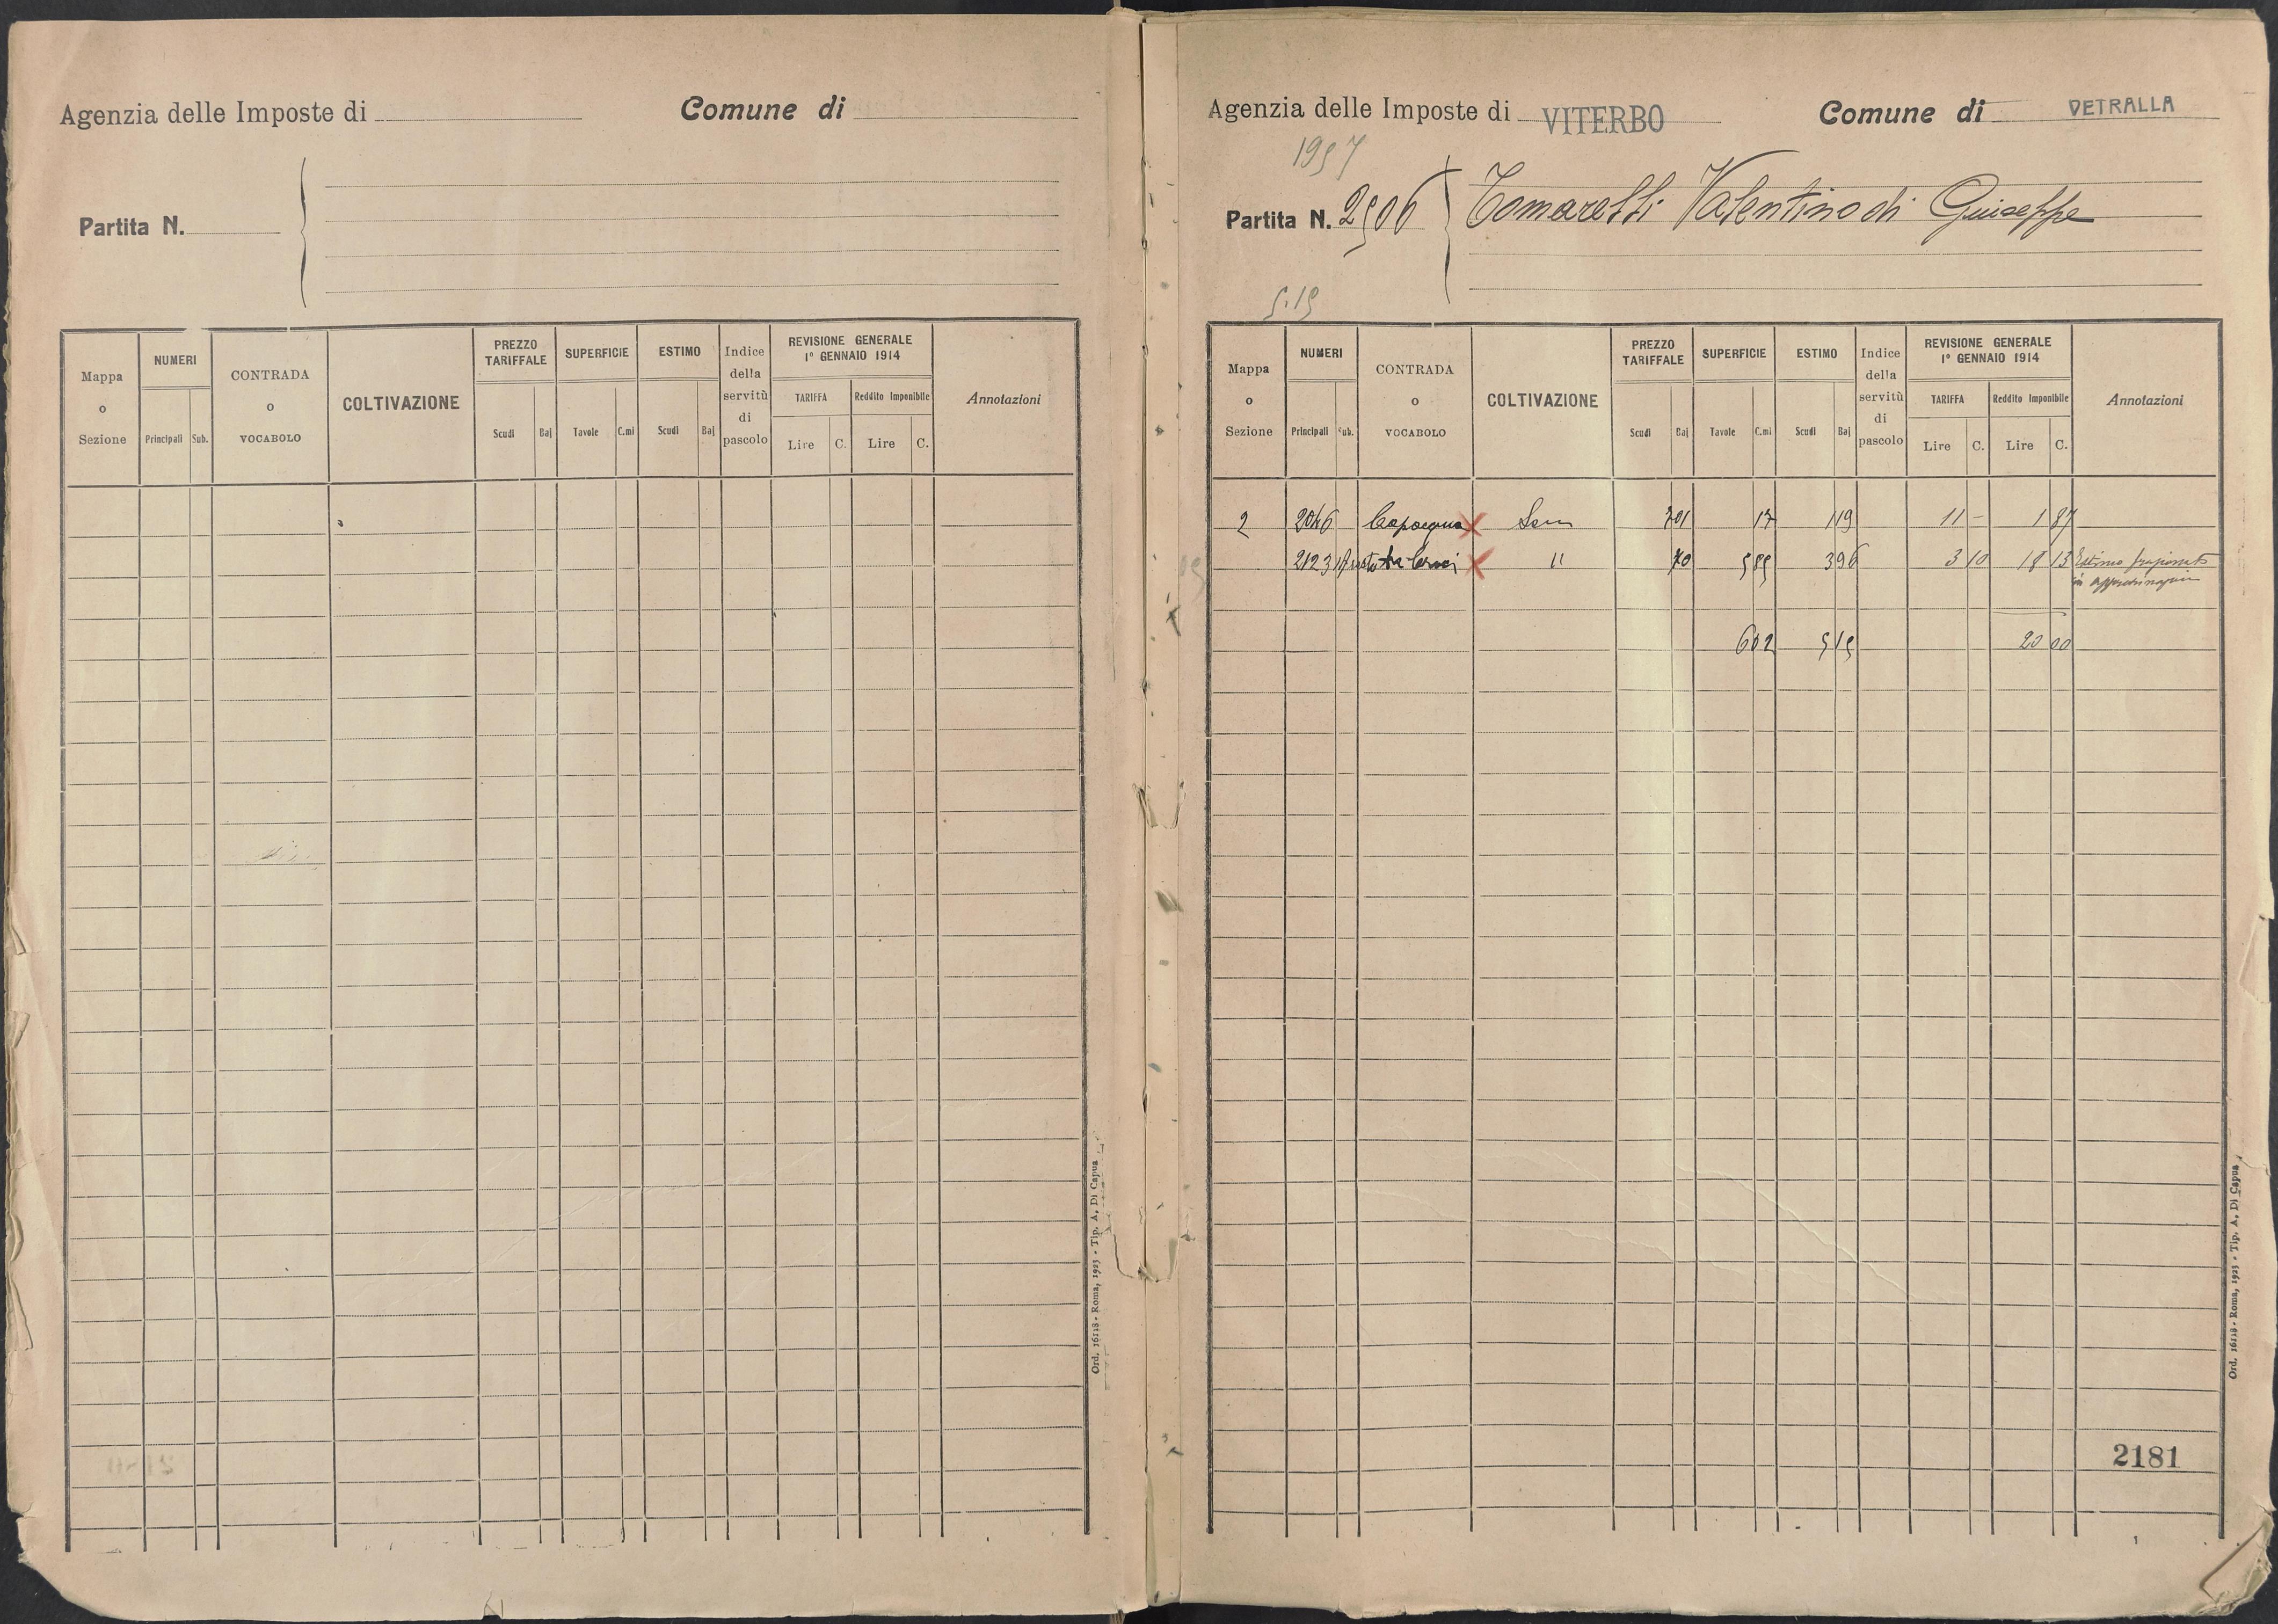 Agenzia delle Imposte di
Comune di
Partita N.
Mappa o Sezione
NUMERI
Principali
Sub.
CONTRADA o VOCABOLO
COLTIVAZIONE
PREZZO TARIFFALE
Scudi
Baj
SUPERFICIE
Tavole
C.mi
ESTIMO
Scudi
Baj
Indice della servitù di pascolo
REVISIONE GENERALE
1° GENNAIO 1914
TARIFFA
Reddito Imponibile
Lire
C.
Lire
C.
Annotazioni
Ord. 16118 - Roma, 1923 - Tip. A. Di Capua
Agenzia delle Imposte di VITERBO
Comune di VETRALLA
1957
Partita N. 2506
Tomarelli Valentino di Giuseppe
5.15
Mappa o Sezione
NUMERI
Principali
Sub.
CONTRADA o VOCABOLO
COLTIVAZIONE
PREZZO TARIFFALE
Scudi
Baj
SUPERFICIE
Tavole
C.mi
ESTIMO
Scudi
Baj
Indice della servitù di pascolo
REVISIONE GENERALE
1° GENNAIO 1914
TARIFFA
Reddito Imponibile
Lire
C.
Lire
C.
Annotazioni
2 2046 Capacqua Sem 7 01 17 1 19 11 - 1 87
2123 " 70 5 85 3 96 3 10 18 13 Estimo
6 02 5 15 20 00
2181
Ord. 16118 - Roma, 1923 - Tip. A. Di Capua